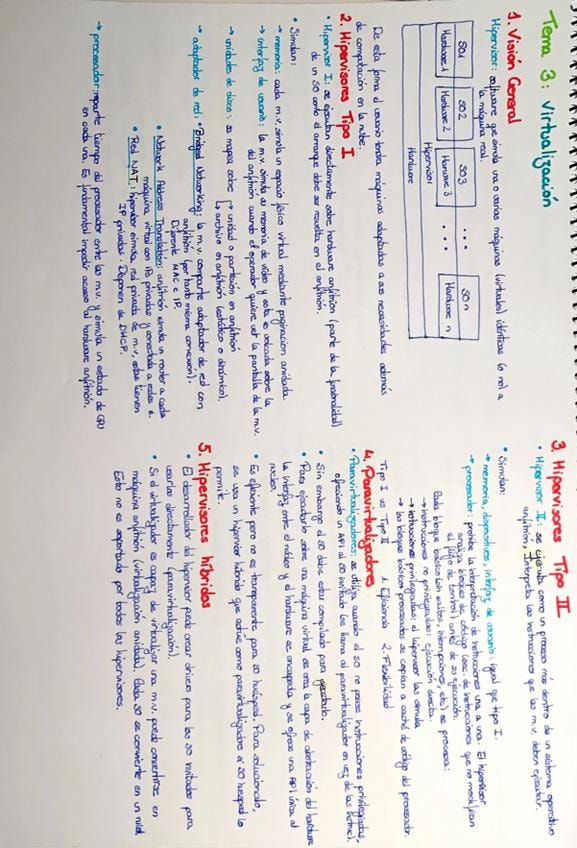 Tema 3: Virtualización
1. Visión General
Hipervisor: software que simula una o varias máquinas (virtuales) idénticas (o no) a
la máquina real.
SO1 SO2 SO3 ... SO n
Hardware 1 Hardware 2 Hardware 3 ... Hardware n
Hipervisor
Hardware
De esta forma el usuario tendrá máquinas adaptadas a sus necesidades además
de computación en la nube.
2. Hipervisores Tipo I
• Hipervisor I: se ejecutan directamente sobre hardware anfitrión (parte de la funcionalidad)
de un SO como el arranque debe ser resuelta en el anfitrión.
• Simulan:
→ memoria: cada m.v. simula un espacio físico virtual mediante paginación anidada
→ interfaz de usuario: la m.v. simula su memoria de vídeo y esta es volcada sobre la
del anfitrión cuando el operador quiere ver la pantalla de la m.v.
→ unidades de disco: se mapea sobre unidad o partición en anfitrión
archivo en anfitrión (estático o dinámico).
→ adaptador de red: • Bridged Networking: la m.v. comparte adaptador de red con
anfitrión (por tanto misma conexión).
Diferente MAC e IP.
• Network Address Translation: anfitrión simula un router a cada
máquina virtual con IPs privadas y conectada a redes e.
• Red NAT: hipervisor simula red privada de m.v, estas tienen
IP privadas. Disponen de DHCP.
→ procesador: reparte tiempo del procesador entre las m.v. y simula un estado de CPU
en cada una. Es fundamental impedir acceso al hardware anfitrión.
3. Hipervisores Tipo II
• Hipervisor II: se ejecuta como un proceso más dentro de un sistema operativo
anfitrión. Interpreta las instrucciones que las m.v. deben ejecutar.
• Simulan:
→ memoria, dispositivos, interfaz de usuario: igual que tipo I.
→ procesador: prohíbe la interpretación de instrucciones una a una. El hipervisor
analiza bloques de código (sec. de instrucciones que no modifican
el flujo de control) antes de su ejecución.
Cada bloque básico (sin saltos, interrupciones, etc) se procesa:
→ instrucciones no privilegiadas: ejecución directa.
→ instrucciones privilegiadas: el hipervisor las simula
→ los bloques básicos procesados se copian a caché de código del procesador.
Tipo I vs Tipo II 1. Eficiencia 2. Flexibilidad
4. Paravirtualizadores
• Paravirtualizadores: se utiliza cuando el SO no posee instrucciones privilegiadas,
ofreciendo un API al SO invitado (se llama al paravirtualizador en vez de las
• Sin embargo el SO debe estar compilado para ejecutarlo.
• Para ejecutarlo sobre una máquina virtual se crea la capa de abstracción del hardware
la interfaz entre el núcleo y el hardware se encapsula y se ofrece una API única al
núcleo.
• Es eficiente pero no es transparente para SO huésped. Para solucionarlo,
se usa un hipervisor híbrido que actúe como paravirtualizador si SO huésped lo
permite.
5. Hipervisores híbridos
• El desarrollador del hipervisor puede crear drivers para los SO invitados para
usarlos directamente (paravirtualización).
• Si el virtualizador es capaz de virtualizar una m.v. puede convertirse en
máquina anfitrión (virtualización anidada). Cada SO se convierte en un nivel
Esto no es soportado por todos los hipervisores.